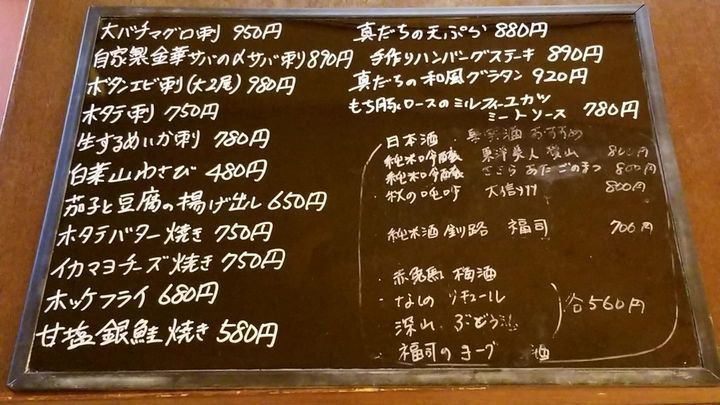 大バチマグロ刺 950円
自家製金華サバの〆サバ刺 890円
ボタンエビ刺(大2尾) 980円
ホタテ刺 750円
生するめいか刺 780円
白葉山わさび 480円
茄子と豆腐の揚げ出し 650円
ホタテバター焼き 750円
イカマヨチーズ焼き 750円
ホッケフライ 680円
甘塩銀鮭焼き 580円
真だちの天ぷら 880円
手作りハンバーグステーキ 890円
真だちの和風グラタン 920円
もち豚ロースのミルフィーユカツ
ミートソース 780円
日本酒 おすすめ
純米吟醸 東洋美人 800円
純米吟醸 800円
秋の 大信州 800円
純米酒 釧路 福司 700円
赤兎馬 梅酒
なしのリキュール
深山ぶどう 各560円
福司のヨーグ 酒